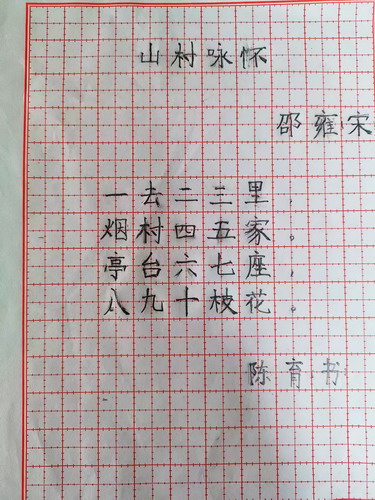 山村咏怀
邵雍宋
一去二三里，
烟村四五家。
亭台六七座，
八九十枝花。
陈育书